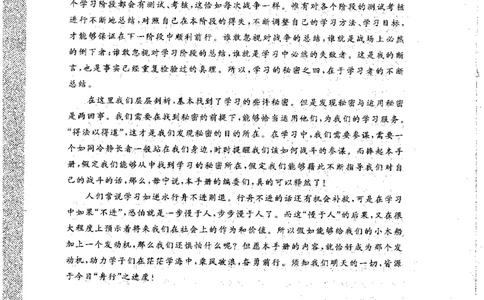 个学习阶段都会有测试、考核,这恰如等次战争一样。惟有对各个阶段的测试考核
进行不断地总结,对照自己在本阶段的得失,不断调整自己的学习方法、学习目标,
才能够保证在下一阶段中顺利前行。谁敢忽视对战争的总结,谁就是战场上必然
的倒下者;谁敢忽视对学习阶段的总结,谁就是学习中必然的失败者。这是我的断
言,也是事实已经重复检验过的真理。所以,学习的秘密之四,在于学习者的不断
总结。
在这里我们层层剖析,基本找到了学习的些许秘密。但是发现秘密与运用秘密
是两回事。我们需要在找到秘密的前提下,能够恰当运用他们,为我们的学习服务。
“得法以得道”,这才是我们发现秘密的目的所在。在学习中,我们需要参谋,需要一
个如同冷静长者一般站在我们身边,时时提醒我们该如何战斗的参谋。而捧起本手
册,假定我们能够从中找到学习的秘密所在,假定我们能够藉此不断指导我们对自
己的战斗的话,那么,毋宁说,本手册的编委们,真的可以释然了!
人们常说学习如逆水行舟不进则退。行舟不进的话还有机会补救,可是在学习
中如果“不进”,恐怕就是一步慢于人,步步慢于人了。而这“慢于人”的后果,又在很
大程度上预示着将来我们在社会上的作为和价值。所以假如能够给我们的小木舟
加上一个发动机,那么我们还惧怕什么呢?但愿本手册的内容,就恰好成为那个发
动机,助力学子们在茫茫学海中,乘风破浪,奋勇前行。须知我们明天的一切,皆源
于今日“舟行”之进度!